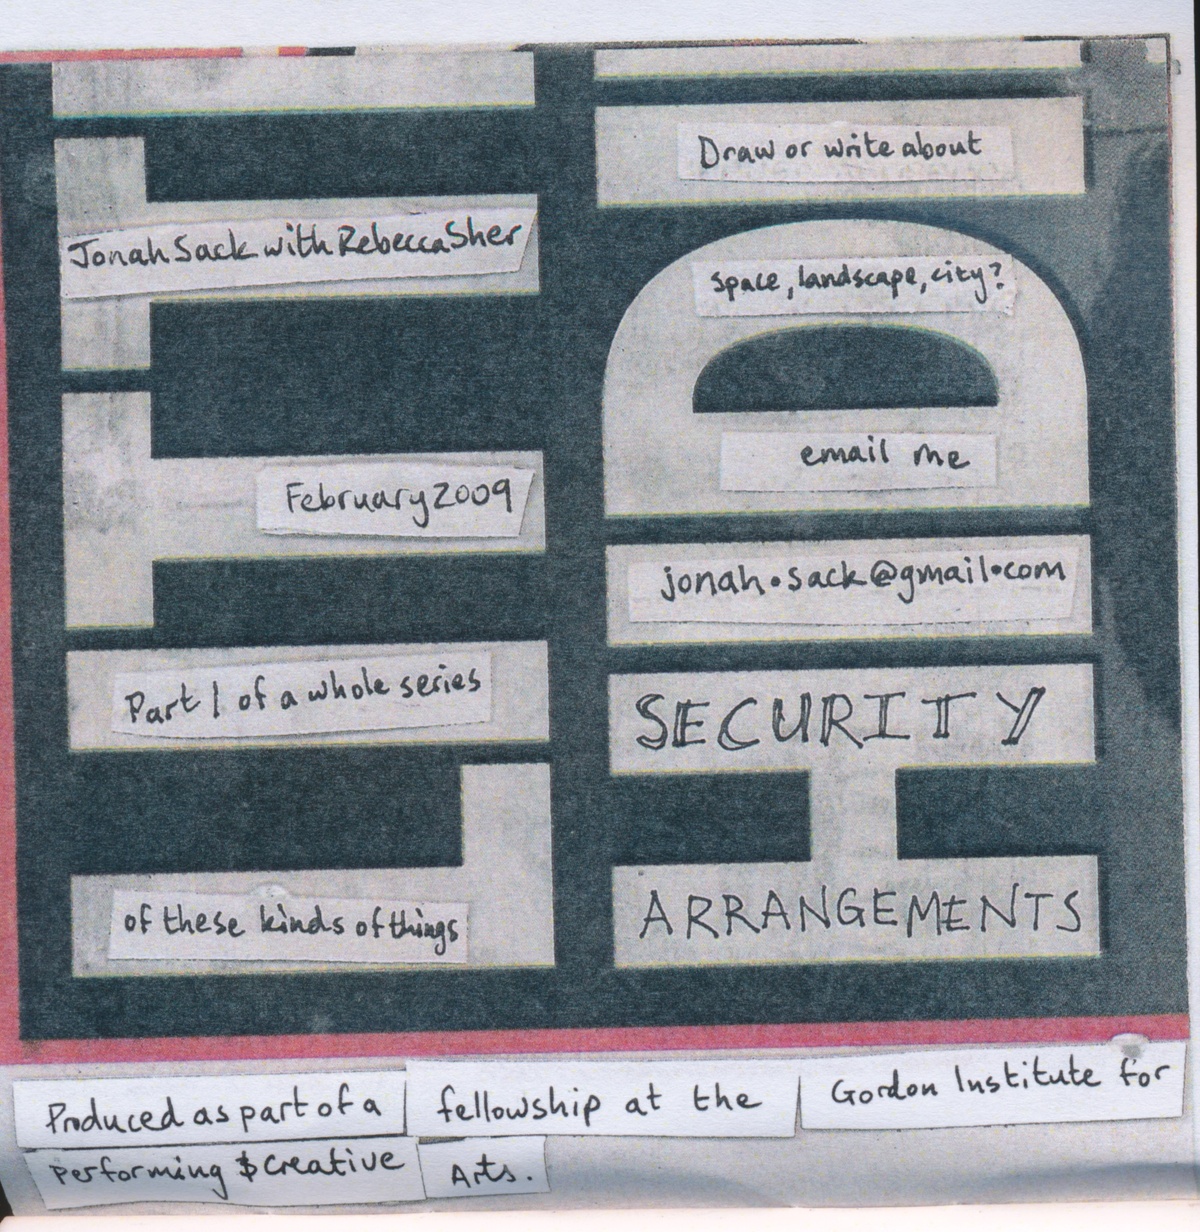 LITT
HIDI
Jonah Sack with Rebecca Sher
February 2009
Part 1 of a whole series
of these kinds of things
Draw or write about
space, landscape, city?
email me
jonah.sack@gmail.com
SECURITY
ARRANGEMENTS
Produced as part of a fellowship at the Gordon Institute for
Performing & Creative Arts.